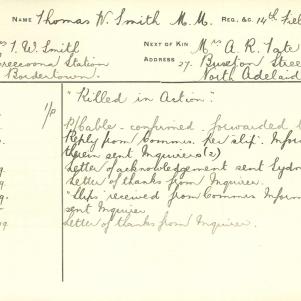 NAME Thomas H. Smith M.M. REG: & C: 14th Fiel
rs T. W. Smith
reecoona Station
Bordertown.
NEXT OF KIN Mrs A. R. Tate
ADDRESS 27. Buxton Stree
North Adelaid
"Killed in Action"
1/p
P/Cable - confirmed - forwarded t
Reply from Commis. per slip. Inform
therein sent Inquirers (2)
Letter of acknowledgement sent Sydn
Letter of thanks from Inquirer.
"Slip" received from Commis Inform
sent Inquirer
Letter of thanks from Inquirer.